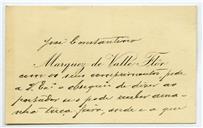 José Constantino
Marquez de Valle Flôr
com os seus cumprimentos pede
a V. Exª o obsequio de dizer ao
portador se pode receber ama-
nhã terça feira, onde e a que